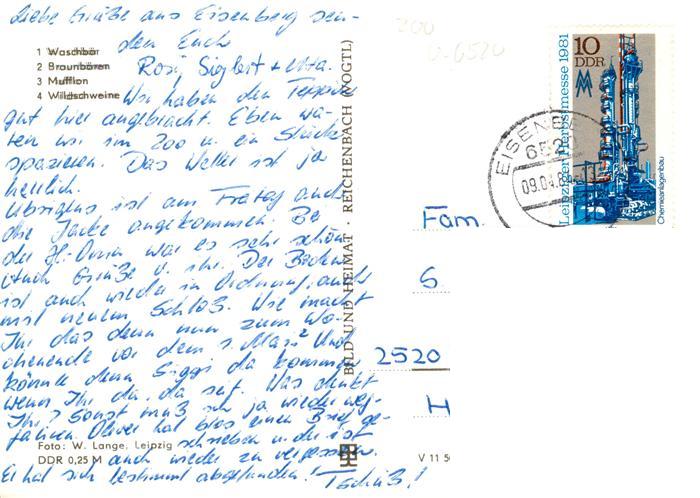 Liebe Grüße aus Eisenberg sen-
den Euch
Rosi, Sigbert + Uta.
1 Waschbär
2 Braunbären
3 Mufflon
4 Wildschweine
Wir haben den Teppich
gut hier angebracht. Eben wa-
ren wir im Zoo u. ein Stück
spazieren. Das Wetter ist ja
herrlich.
Übrigens ist am Freitag auch
die Jacke angekommen. Bei
der H.-Oma war es sehr schön
Auch Grüße v. ihr. Der Boden
ist auch wieder in Ordnung, auch
mit neuem Schloß. Wie macht
Ihr das denn nun zum Wo-
chenende vor dem 1. Mai? Und
könnte denn Siggi da kommen
wenn Ihr da, da seit. Was denkt
Ihr? Sonst muß ich ja wieder weg-
fahren. Oliver hat blos einen Brief ge-
schrieben u. der ist
auch wieder zu vergessen.
Er hat sich bestimmt abgefunden! Tschüß!
Foto: W. Lange, Leipzig
DDR 0,25 M
BILD UND HEIMAT · REICHENBACH (VOGTL)
V 11 50
200
0-6520
10
DDR
Leipziger Herbstmesse 1981
Chemieanlagenbau
EISENBE
652
09.04.8
Fam.
S
2520
H